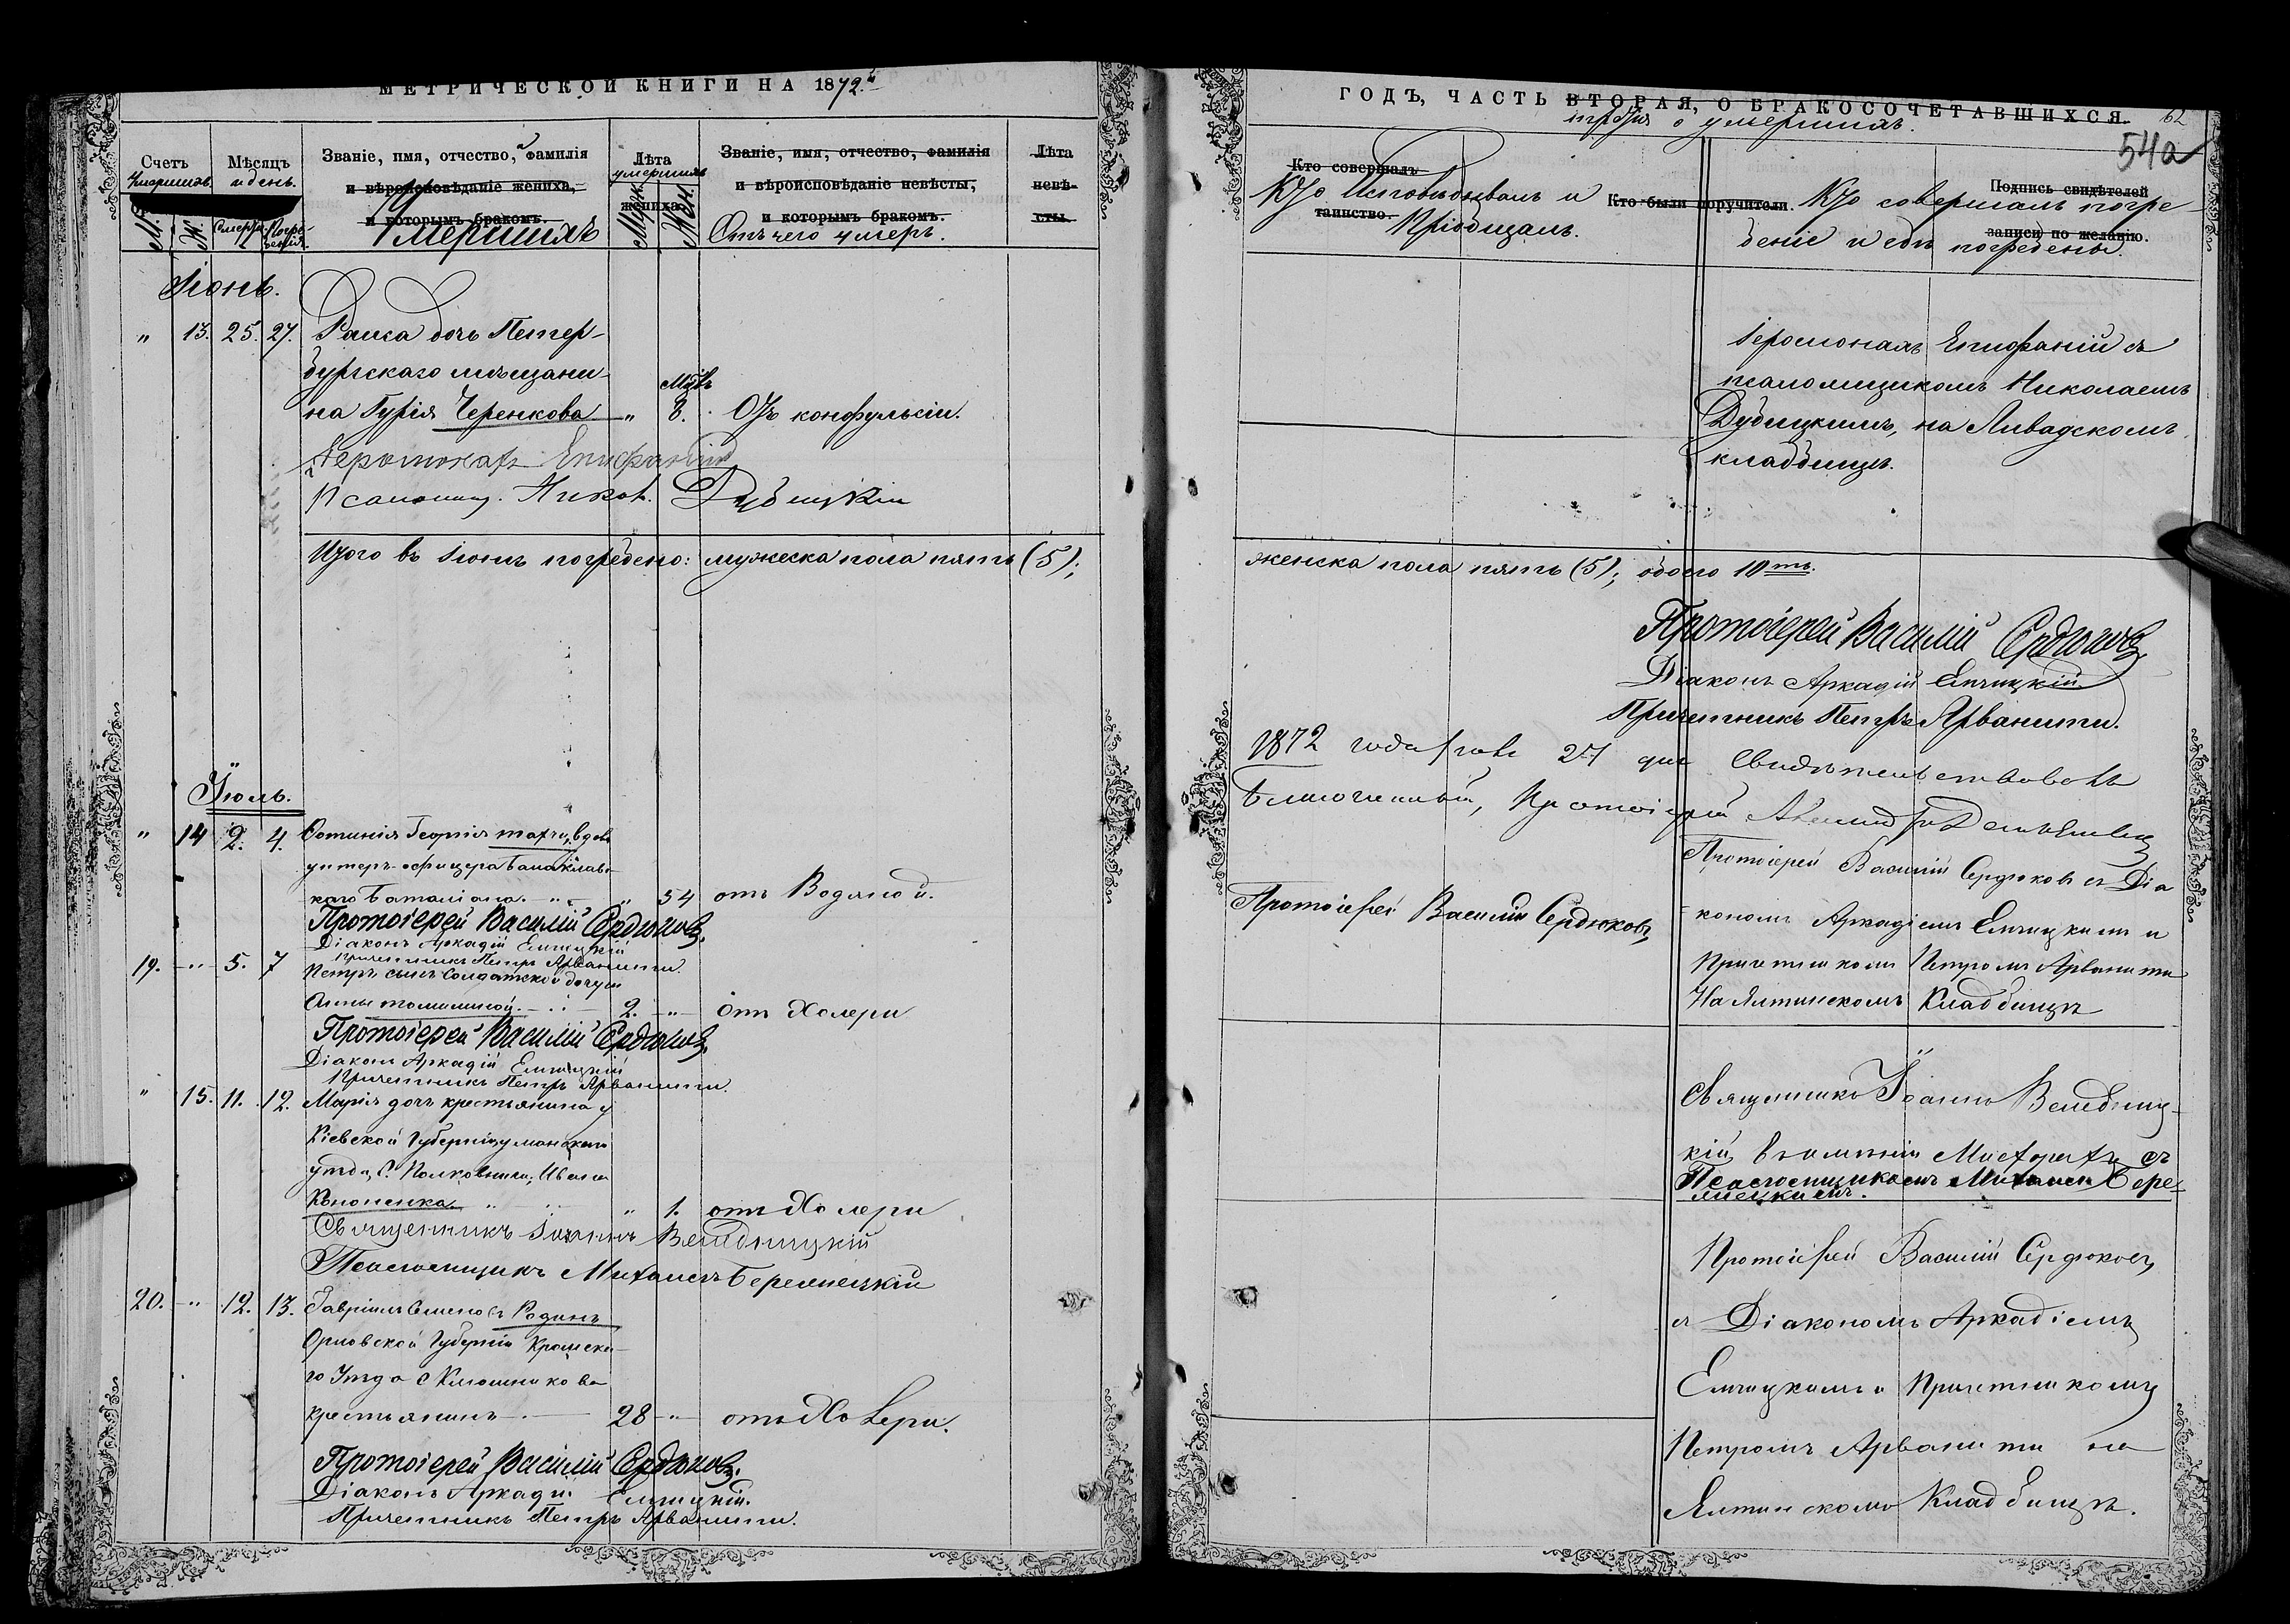 МЕТРИЧЕСКОЙ КНИГИ НА 1872.
Счетъ Умершихъ.
Мѣсяцъ и день.
Званіе, имя, отчество, фамилія
и вѣроисповѣданіе жениха,
и которымъ бракомъ.
Умершихъ
Лѣта умершихъ
жениха.
Званіе, имя, отчество, фамилія
и вѣроисповѣданіе невѣсты,
и которымъ бракомъ.
Отъ чего умеръ.
Лѣта
невѣ-
сты.
М. Ж. Смерти. Погре-
бенія. Муж. Жен.
Іюнь.
" 13. 25. 27. дочь Петер-
бургскаго мѣщани-
на Гурія Черенкова " 8. Мѣс. Отъ конфульсіи.
Іеромонахъ Епифаній
Псаломщ. Никол. Дубицкій
Итого въ Іюнѣ погребено: мужеска пола пять (5);
Іюль.
" 14 2. 4. Фотинія Георгія вдова
унтеръ-офицера Балаклав-
каго баталіона. " 54 отъ Водяной.
Протоіерей Василій Сердюковъ.
Діаконъ Аркадій Емчицкій
Причетникъ Петръ Арванити.
19. " 5. 7 Петръ сынъ Солдатской дочери
Анны 2. " отъ Холери
Протоіерей Василій Сердюковъ.
Діаконъ Аркадій Емчицкій
Причетникъ Петръ Арванити.
" 15. 11. 12. Марія дочь крестьянина
Кіевской Губерніи, уманскаго
уѣзда, С. Ивана
Кононенка. " 1. отъ Холери
Священникъ Іоаннъ
Псаломщикъ Михаилъ
20. " 12. 13. Гавріилъ Семеновъ Родинъ
Орловской Губерніи Кромска-
го Уѣзда с
крестьянинъ 28 " отъ Холери.
Протоіерей Василій Сердюковъ.
Діаконъ Аркадій Емчицкій.
Причетникъ Петръ Арванити.
ГОДЪ, ЧАСТЬ ВТОРАЯ, О БРАКОСОЧЕТАВШИХСЯ.
третья о умершихъ.
62
54а
Кто совершалъ
таинство.
Кто Исповѣдывалъ и
Пріобщалъ.
Кто были поручители.
Подпись свидѣтелей
записи по желанію.
Кто совершалъ погре-
беніе и гдѣ погребены.
Іеромонахъ Епифаній съ
псаломщикомъ Николаемъ
Дубицкимъ, на Ливадскомъ
кладбищѣ.
женска пола пять (5); обоего 10ть.
Протоіерей Василій Сердюковъ
Діаконъ Аркадій Емчицкій
Причетникъ Петръ Арванити.
1872 года 27 дня Свидѣтельствовалъ
Благочинный, Протоіерей
Протоіерей Василій Сердюковъ
Протоіерей Василій Сердюковъ съ Діа
кономъ Аркадіемъ Емчицкимъ и
Причетникомъ Петромъ Арванити
На Ялтинскомъ Кладбищѣ
Священникъ Іоаннъ
кій, въ имѣніи съ
Псаломщикомъ Михаиломъ
Протоіерей Василій Сердюковъ
съ Діакономъ Аркадіемъ
Емчицкимъ и Причетникомъ
Петромъ Арванити на
Ялтинскомъ Кладбищѣ.